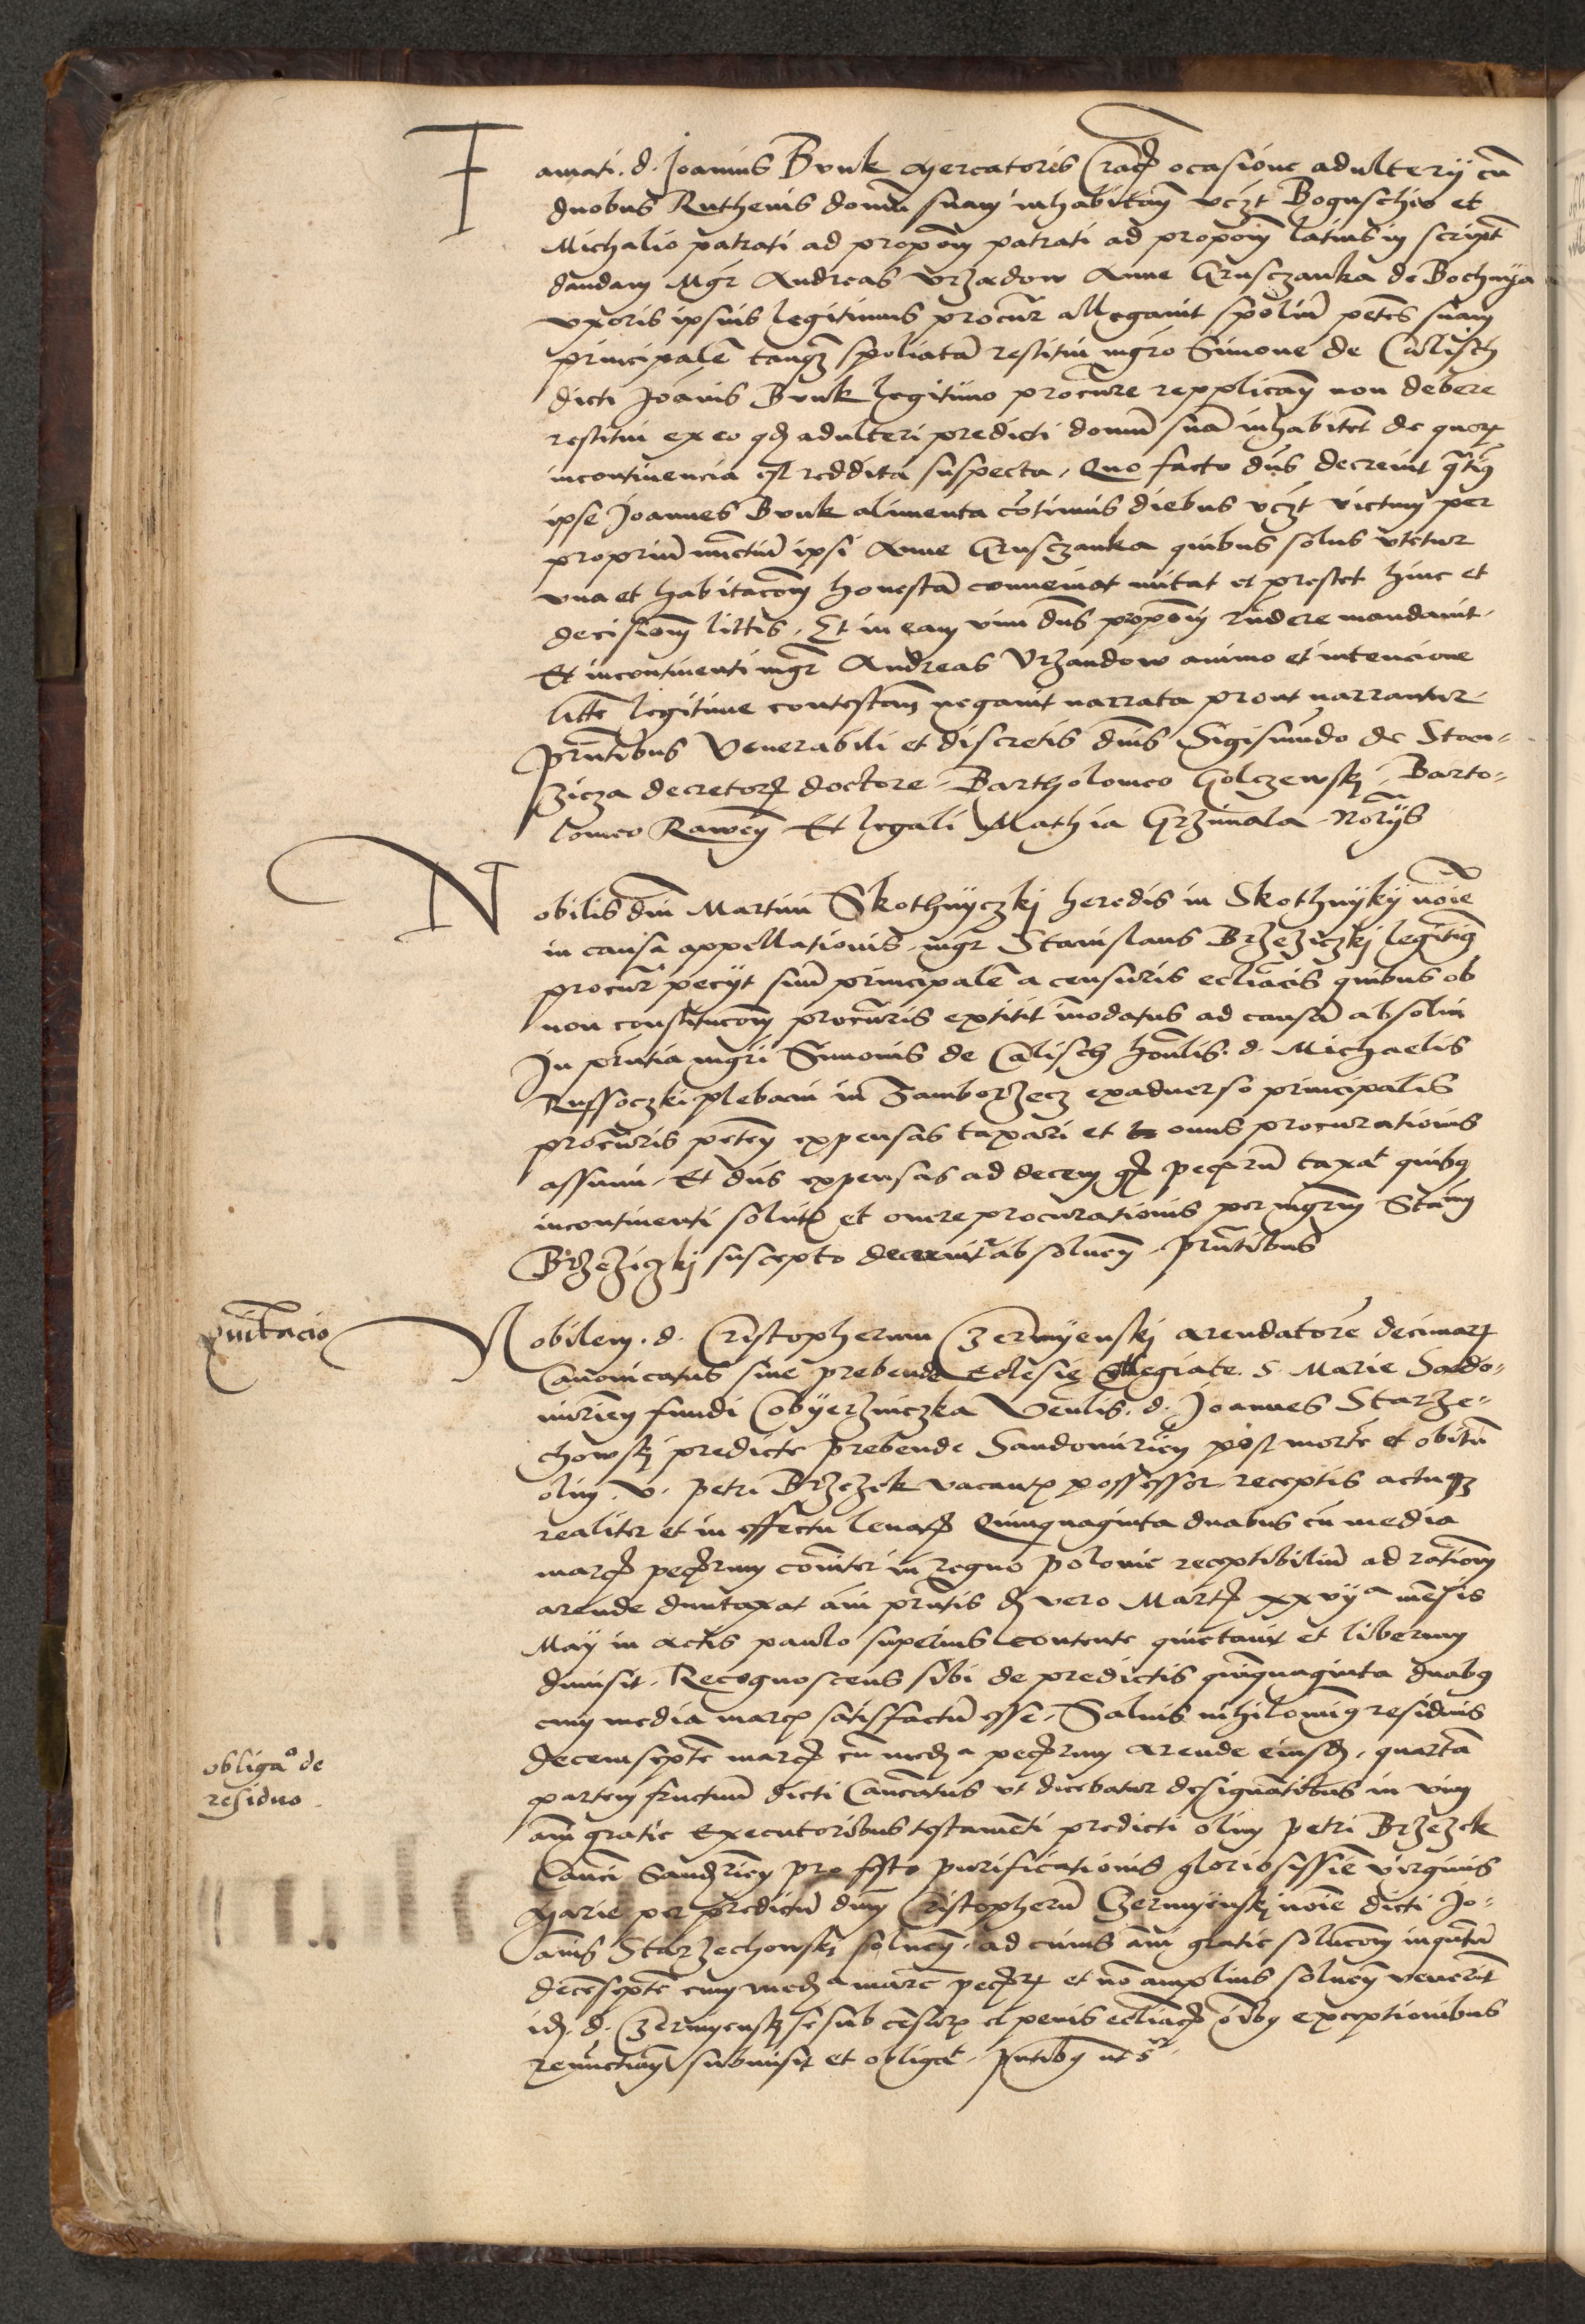 Famati d. Joannis Bunk Mercatoris Crac̄ ocasione adulterÿ cū
duobus Ruthenis domū suam inhabitan̄ vczt Boguschio et
Michalio patrati ad propon̄ patrati ad propon̄ latius in script̄
dandam Mgr̄ Andreas Vrzadow Anne Grusczanka de Bochnya
vxoris ipsius legitimus procur̄ allegavit spoliū petēs suam
principalē tanq̄ȝ spoliatā restitui mgr̄o Simone de Calisch
dicti Joānis Bunk legitimo procur̄e repplican̄ non debere
restitui ex eo qd̄ adulteri predicti domū suā inhabitēt de quor̄
incontinencia est reddita suspecta, Quo facto dn̄s decrevit q̄tn̄g
ipse Joannes Bunk alimenta cōtinuis diebus vczt victum per
propriū nunctiū ipsi Anne Grusczanka quibus solus vtetur
vna et habitacōm honestā conueniat mitat et prestet hinc et
decisionē littis, Et in eam vim dn̄s propon̄ rn̄dere mandavit.
Et incontinenti mgr̄ Andreas Vrzandow animo et intencione
litē legitime contestan̄ negavit narrata prout narrantur.
Prn̄tibus Venerabili et discretis dn̄is Sigismūdo de Stan-
zicza decretor̄ doctore, Bartholomeo Golczewskj, Barto-
lomeo Rawen̄ Et legali Mathia Grzimala Nōrÿs
Nobilis dn̄i Martini Skothnyczkj heredis in Skothnyky nōie
in causa appellationis, mgr̄ Stanislaus Brzeziczkj legitig
procur̄ pecÿt suū principalē a censuris eccliācis quibus ob
non constitucōm procur̄is extitit īnodatus ad causā absolui
In prn̄tia mgr̄i Simonis de Calisch hon̄lis. d. Michaelis
Russoczki plebani in Samborzecz exadverso principalis
procur̄is peten̄ expensas taxari et onus procurationis
assumi, Et dn̄s expensas ad decem gr̄ pecūr̄ū taxāt quibg
incontinenti solutꝭ et onere procurationis per mgr̄m Stān̄
Brzeziczkj suscepto decrevit absoluen̄. Prn̄tibus
Quitacio
Nobilem. d. Cristopherum Czermyenskj arendatorē decimar̄
Canonicatus siue prebende Eclesie Collegiate. S. Marie Sando-
mirien̄ fundi Cobyerzniczka Ven̄lis. d. Joannes Starze-
chowskj predicte prebende Sandomirien̄ post mortē et obitū
olim. v. Petri Brzezek vacantꝭ possessor, receptis actuqȝ
realiter et in effectu levatꝭ Quinquaginta duabus cū media
marcꝭ pecūr̄um cōmiter in regno Polonie receptibiliū ad rationē
arende duntaxat ān̄i prn̄tis d̄ vero Martꝭ xxvÿᵃ mēsis
Maÿ in actis paulo superius contente quietavit et liberum
dimisit, Recognoscens sibi de predictis quinquaginta duabg
cum media marcꝭ satisfactū esse, Saluis nihilominꝰ residuis
decemseptē marcꝭ cū medᵃ pecūr̄um arende eiusd̄, quartā
obligaº de
residuo.
partem fructuū dicti Can̄catus vt dicebatur designātibus in vim
ān̄i gratie Executoribus testamēti predicti olim Petri Brzezek
Can̄ci Sand̄rien̄ pro festo purificationis gloriosissīe virginis
Marie per predictū dn̄m Cristopherū Czermyenskj nōie dicti Jo-
annis Starzechowskj soluen̄, ad cuius ān̄i gratie solucōm inquātū
decēseptē cum medᵃ marc̄ pecūr̄ et nō amplius soluen̄ venerīt
id̄. d. Czermyenskj se sub cēsurꝭ et penis eccliācꝭ oībꝰ exceptionibus
renūctian̄ submisit et obligāt. Prn̄tibꝰ ut sᵃ.